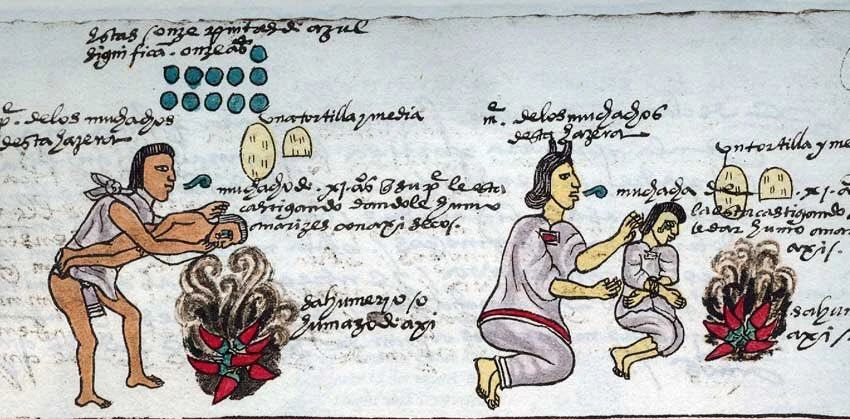 estas onze pintas de azul
significan onze aºs
pº. de los muchachos
desta hazera
una tortilla y media
muchacho de .xi. aºs q su pº le esta
castigando dandole humo
a narizes con axi secos.
sahumerio o
humazo de axi
mº. de los muchachos
desta hazera
un tortilla y me
muchacha de .xi. a
la esta castigando
le dar humo
axi.